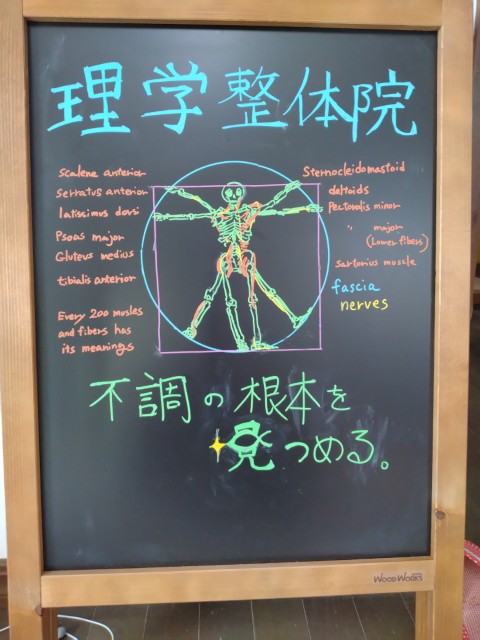 理学整体院
scalene anterior
serratus anterior
latissimus dorsi
Psoas major
Gluteus medius
tibialis anterior
Every 200 musles
and fibers has
its meanings
Sternocleidomastoid
deltoids
Pectoralis minor
〃 major
(Lower fibers)
Sartorius muscle
fascia
nerves
不調の根本を
見つめる。
WOODWORKS